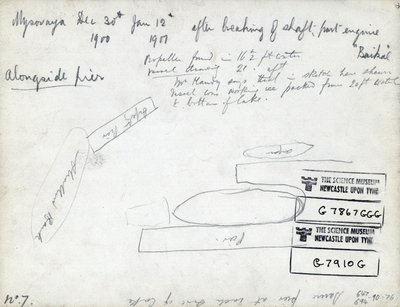 Mysovaya Dec 30th Jan 12th after breaking of shaft, port engine
1900 1901 "Baikal"
Alongside pier
Propeller found in 16½ ft water
vessel drawing 21. aft
Mr Handy says that in sketch here shown
vessel when working ice packed from 20ft water
to bottom of lake.
Pier
Sheltered Dock
open
Pier
THE SCIENCE MUSEUM
NEWCASTLE UPON TYNE
G7867GGG
THE SCIENCE MUSEUM
NEWCASTLE UPON TYNE
G7910G
No 7.
Same pier at each side of Lake